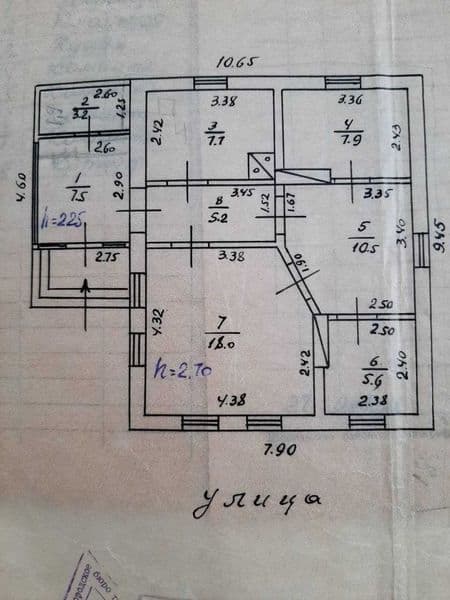 10.65
2.60
2
3.2
1.25
3.38
3
7.7
2.42
3.36
4
7.9
2.43
2.60
1
7.5
2.90
4.60
h=225
3.45
8
5.2
1.52
1.67
3.35
5
10.5
3.40
9.45
2.75
3.38
1.90
2.50
4.32
7
18.0
2.42
2.50
6
5.6
2.40
h=2.70
4.38
2.38
7.90
улица
бюро